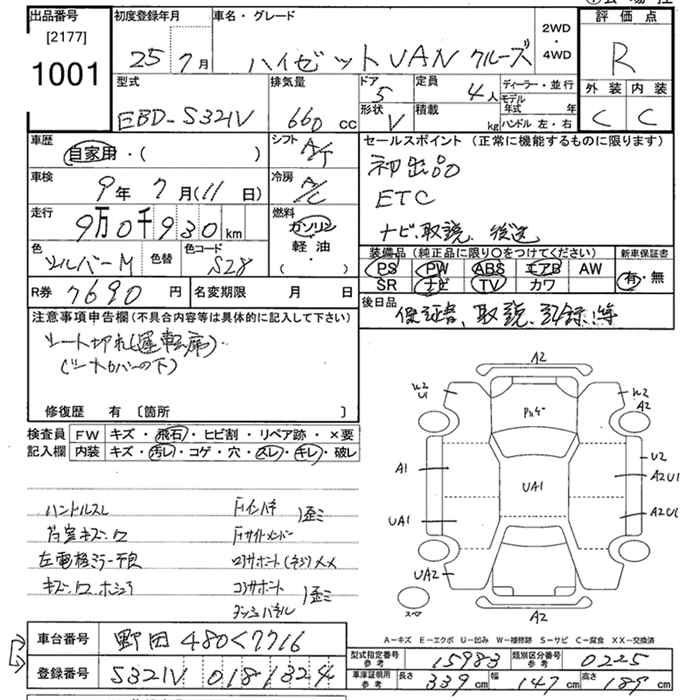 出品番号
[2177]
1001
初度登録年月
25 7月
車名・グレード
ハイゼットVAN クルーズ
2WD
・
4WD
評価点
R
外装 内装
C C
型式
EBD-S321V
排気量
660 cc
ドア
5
形状
V
定員
4人
積載
kg
ディーラー・並行
モデル
年式 年
ハンドル 左・右
車歴
自家用・( )
シフト
A/T
セールスポイント(正常に機能するものに限ります)
初出品
ETC
ナビ、取説、後送
車検
9年 7月(11日)
冷房
A/C
走行
9万0千930km
燃料
ガソリン
・
軽油
( )
色
シルバーM
色替
色コード
S28
装備品(純正品に限り〇をつけてください)
PS PW ABS エアB AW
SR ナビ TV カワ
新車保証書
有・無
R券 7690円
名変期限 月 日
後日品
保証書、取説、記録簿
注意事項申告欄(不具合内容等は具体的に記入して下さい)
シート切れ(運転席)
(シートカバーの下)
修復歴 有 〔箇所 〕
検査員
記入欄
FW キズ・飛石・ヒビ割・リペア跡・×要
内装 キズ・汚レ・コゲ・穴・スレ・キレ・破レ
ハンドルスレ
荷室キズ・ワ
左電格ミラー不良
Fインパネ
Fサイドメンバー
歪ミ
コアサポート
歪ミ
A2
W2
U1
W2
A2
Pハゲ
U2
A1
UA1
A2U1
UA1
A2U1
UA2
スペア
A2
A-キズ E-エクボ U-凹み W-補修跡 S-サビ C-腐食 XX-交換済
車台番号 野田480<7716
登録番号 S321V 0181324
型式指定番号
参考
15983
類別区分番号
参考
0225
車庫証明用
参考
長さ 339cm 幅 147cm 高さ 189cm